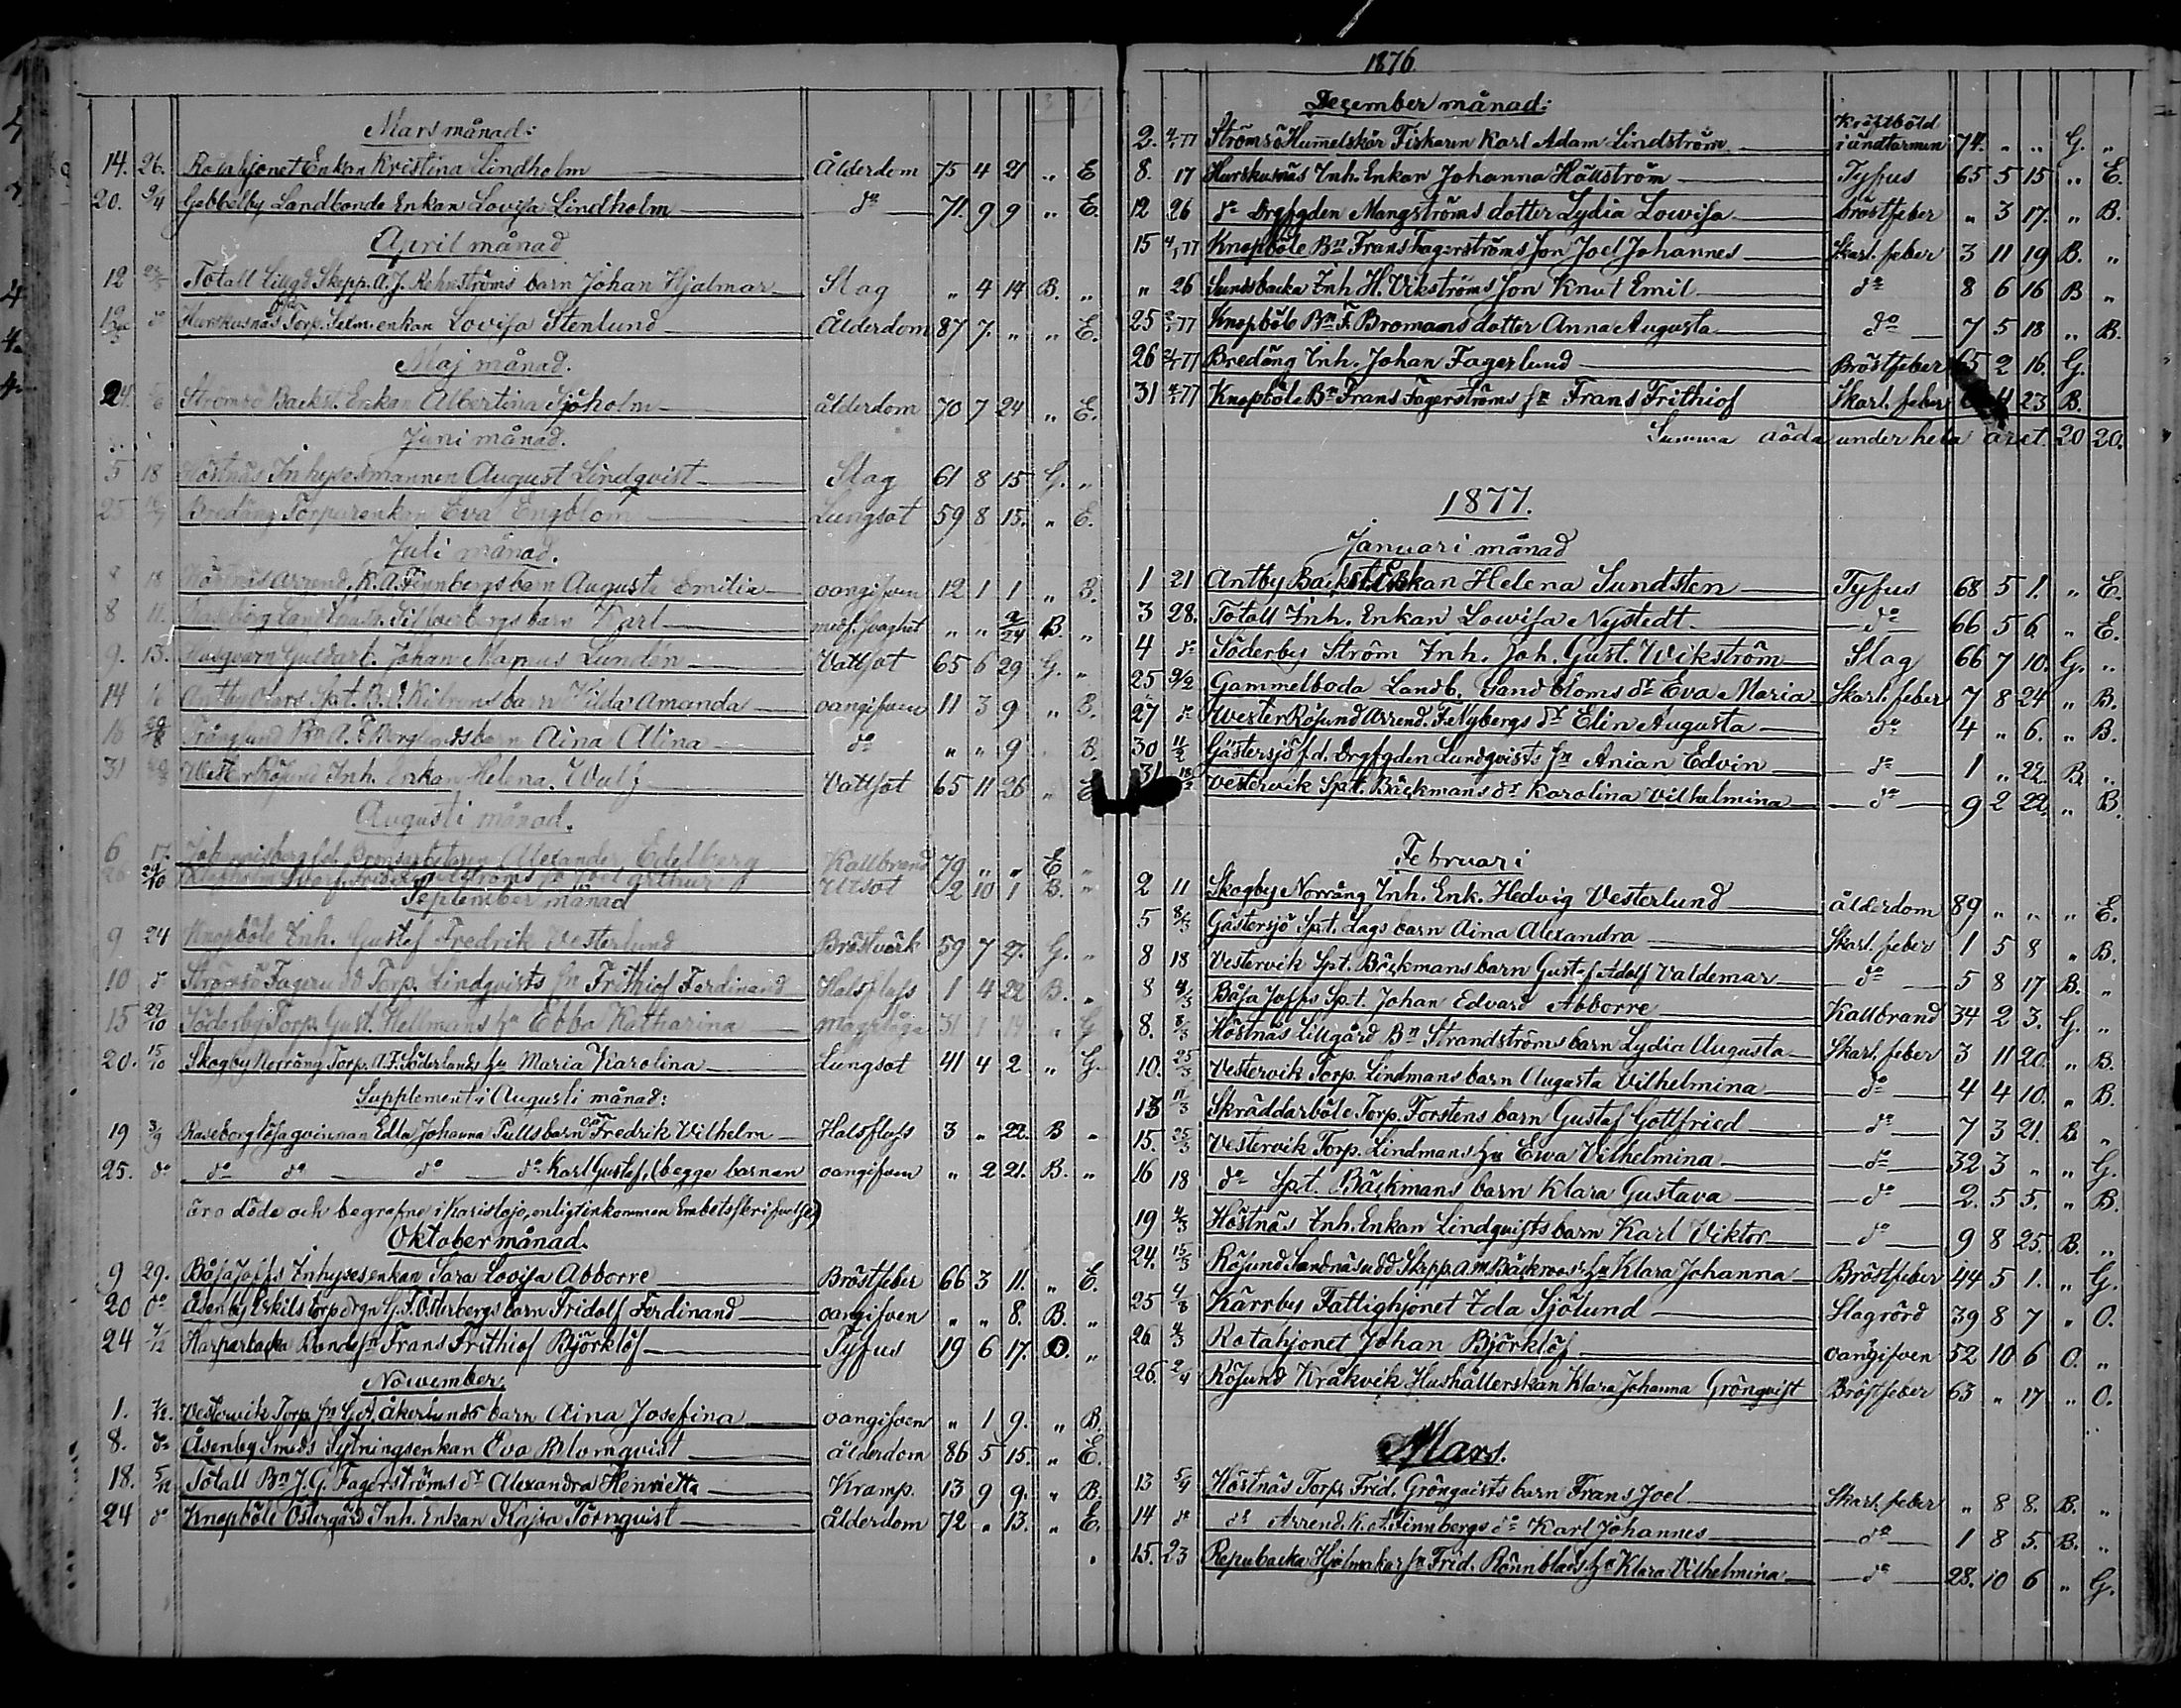 Mars månad:
14. 26. Rotahjonet Enkan Kristina Lindholm Ålderdom 75 4 21 " E
20. 9/4 Gebbelby Landbonde Enkan Lovisa Lindholm do 71. 9 9 " E.
April månad
12 Totall Lillgd Skepp. A. J. Rehnströms barn Johan Hjalmar Slag " 4 14 B. "
19 do Hurskusnäs Torp. enkan Lovisa Stenlund Ålderdom 87 7. " " E.
Maj månad.
24. Strömsö Backst. Enkan Albertina Sjöholm ålderdom 70 7 24 " E.
Juni månad.
5 18 Höstnäs Inhysesmannen August Lindqvist Slag 61 8 15 G. "
25 Bredäng Torparenkan Eva Engblom Lungsot 59 8 15. " E.
Juli månad.
8 18 Höstnäs Arrend. K. A. Finnbergs barn Augusta Emilia oangifven 12 1 1 " B.
8 11. Raseborg Silfverbergs barn Karl medf. svaghet " " 2/24 B. "
9. 13. Johan Magnus Lundén Vattsot 65 6 29 G. "
14 Antby barn Hilda Amanda oangifven 11 3 9 " B.
16 barn Aina Alina do " " 9 " B.
31 Wester Rösund Inh. Enkan Helena Wulf Vattsot 65 11 26 " E
Augusti månad.
6 17. Alexander Edelberg Kallbrand 79 " " E "
26 29/10 Joel Arthur Utsot 2 10 1 B. "
September månad
9 24 Knopböle Inh. Gustef Fredrik Vesterlund Bröstvärk 59 7 27. G. "
10 do Strömsö Torp. Lindqvists sn Frithiof Ferdinand Halsfluss 1 4 22 B. "
15 29/10 Söderby Torp. Gust. Hellmans hu Ebba Katharina 31 1 19 " G
20. 15/10 Skogby Norräng Torp. A. F. Söderlunds hu Maria Karolina Lungsot 41 4 2 " G.
Supplement i Augusti månad:
19 3/9 Raseborg lösa qvinnan Edla Johanna Pulls barn Fredrik Vilhelm Halsfluss 3 " 22. B "
25. do do do do do Karl Gustaf. (begge barnen oangifven " 2 21. B. "
äro döde och begrafne i Karislojo, enligt inkommen Embetsskrifvelse)
Oktober månad.
9 29. Båsa Joffs Inhysesenkan Sara Lovisa Abborre Bröstfeber 66 3 11. " E.
20 do Åsenby Eskils torp drgn G. F. Österbergs barn Fridolf Ferdinand oangifven " " 8. B. "
24 4/12 Harparbacka Bondesn Frans Frithiof Björklöf Tyfus 19 6 17. O. "
November.
1. 3/12. Vestervik Torp sn Åkerlunds barn Aina Josefina oangifven " 1 9. " B.
8. do Åsenby Smeds Sytningsenkan Eva Blomqvist ålderdom 86 5 15. " E.
18. 5/12 Totall Bn J. G. Fagerströms dr Alexandra Henrietta Kramp. 13 9 9. " B.
24 do Knopböle Östergård Inh. Enkan Kajsa Törnqvist ålderdom 72 " 13. " E.
1876
December månad:
2. 4/1 77 Strömsö Hummelskär Fiskaren Karl Adam Lindström Kräftböld i ändtarmen 74. " " G. "
8. 17 Hurskusnäs Inh. Enkan Johanna Hällström Tyfus 65 5 15 " E.
12 26 do Drgfgden Mangströms dotter Lydia Lowisa bröstfeber " 3 17. " B.
15 4/1 77 Knopböle Bn Frans Fagerströms son Joel Johannes Skarl. feber 3 11 19 B. "
" 26 Sundsbacka Inh. H. Vikströms son Knut Emil do 8 6 16 B "
25 2/1 77 Knopböle Bn F. Bromans dotter Anna Augusta do 7 5 18 " B.
26 77 Bredäng Inh. Johan Fagerlund Bröstfeber 65 2 16. G.
31 77 Knopböle Bn Frans Fagerströms sn Frans Frithiof Skarl. feber 4 23 B.
Summa döda under hela året 20 20.
1877.
Januari månad
1 21 Antby Backst. Enkan Helena Sundsten Tyfus 68 5 1. " E.
3 28. Totall Inh. Enkan Lowisa Nystedt do 66 5 6. " E.
4 do Söderby Ström Inh. Joh. Gust. Wikström Slag 66 7 10. G. "
25 9/2 Gammelboda Landb. Sandbloms dr Eva Maria Skarl. feber 7 8 24 " B.
27 do Wester Rösund Arrend. F. Nybergs dr Elin Augusta do 4 " 6. " B.
30 11/2 Gästersjö f.d. Drgfgden Lundqvists sn Anian Edvin do 1 " 22. B. "
31 18/2 Vestervik Spt. Bäckmans dr Karolina Vilhelmina do 9 2 22 " B.
Februari
2 11 Skogby Norräng Inh. Enk. Hedvig Vesterlund ålderdom 89 " " " E.
5 8/3 Gästersjö Spt. Lags barn Aina Alexandra Skarl. feber 1 5 8 " B.
8 18 Vestervik Spt. Bäckmans barn Gustaf Adolf Valdemar do 5 8 17 B. "
8 4/3 Båsa Joffs Spt. Johan Edvard Abborre Kallbrand 34 2 3. G. "
8. 8/3 Höstnäs Lillgård Bn Strandströms barn Lydia Augusta Skarl. feber 3 11 20. " B.
10. 25/3 Vestervik Torp. Lindmans barn Augusta Vilhelmina do 4 4 10. " B.
13 11/3 Skräddarböle Torp. Forstens barn Gustaf Gottfried do 7 3 21. B. "
15. 25/3 Vestervik Torp. Lindmans hu Ewa Vilhelmina do 32 3 " " G.
16 18 do Spt. Bäckmans barn Klara Gustava do 2. 5 5. " B.
19 4/3 Höstnäs Inh. Enkan Lindqvists barn Karl Viktor do 9 8 25. B. "
24. 15/3 Rösund Sandnäsudd Skepp. A. M. Bäckroos hu Klara Johanna Bröstfeber 44 5 1. " G.
25 4/3 Kärrby Fattighjonet Ida Sjölund Slagrörd 39 8 7 " O.
26 4/3 Rotahjonet Johan Björklöf oangifven 52 10 6 O. "
26. 2/4 Rösund Kråkvik Hushållerskan Klara Johanna Grönqvist Bröstfeber 63 " 17 " O.
Mars.
13 5/4 Höstnäs Torp. Frid. Grönqvists barn Frans Joel Skarl. feber " 8 8. B. "
14 do do Arrend. K. A. Finnbergs do Karl Johannes do 1 8 5. B. "
15. 23 Repubacka Hjelmakar sn Frid. Rönnblads hu Klara Vilhelmina do 28. 10 6 " G.